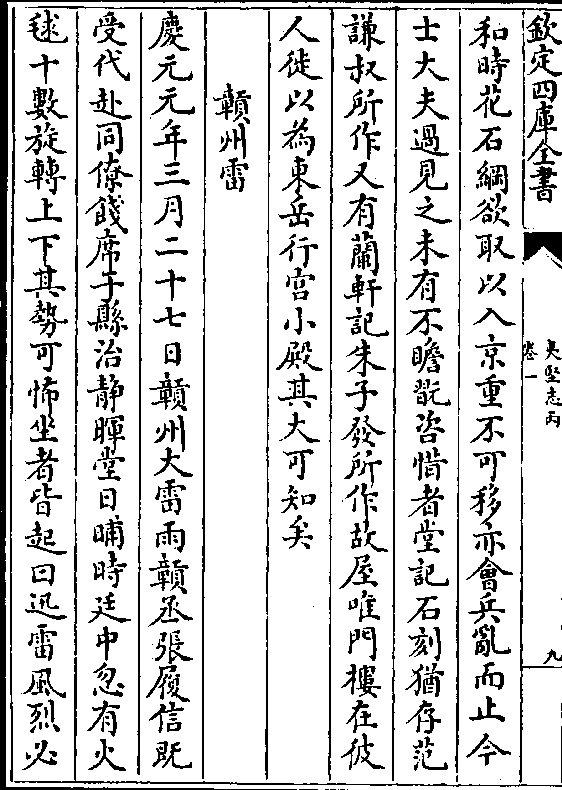 欽定四庫全書
夷堅志丙
卷一
九
和時花石綱欲取以入京重不可移亦會兵亂而止今
士大夫過見之未有不瞻翫咨惜者堂記石刻猶存范
謙叔所作又有蘭軒記朱子發所作故屋唯門樓在彼
人徙以為東岳行宫小殿其大可知矣
贛州雷
慶元元年三月二十七日贛州大雷雨贛丞張履信既
受代赴同僚餞席于縣治静暉堂日晡時廷中忽有火
毬十數旋轉上下其勢可怖坐者皆起曰迅雷風烈必